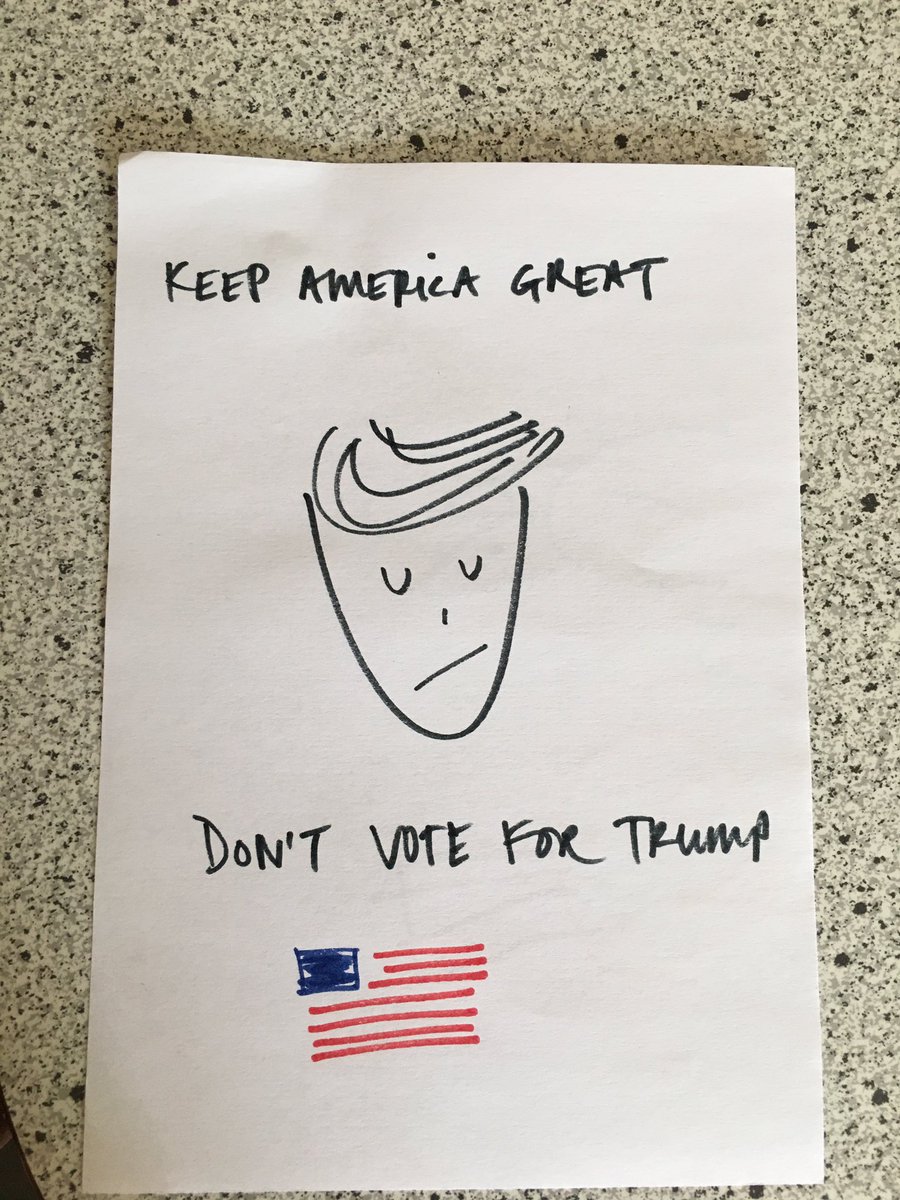 KEEP AMERICA GREAT
DON'T VOTE FOR TRUMP